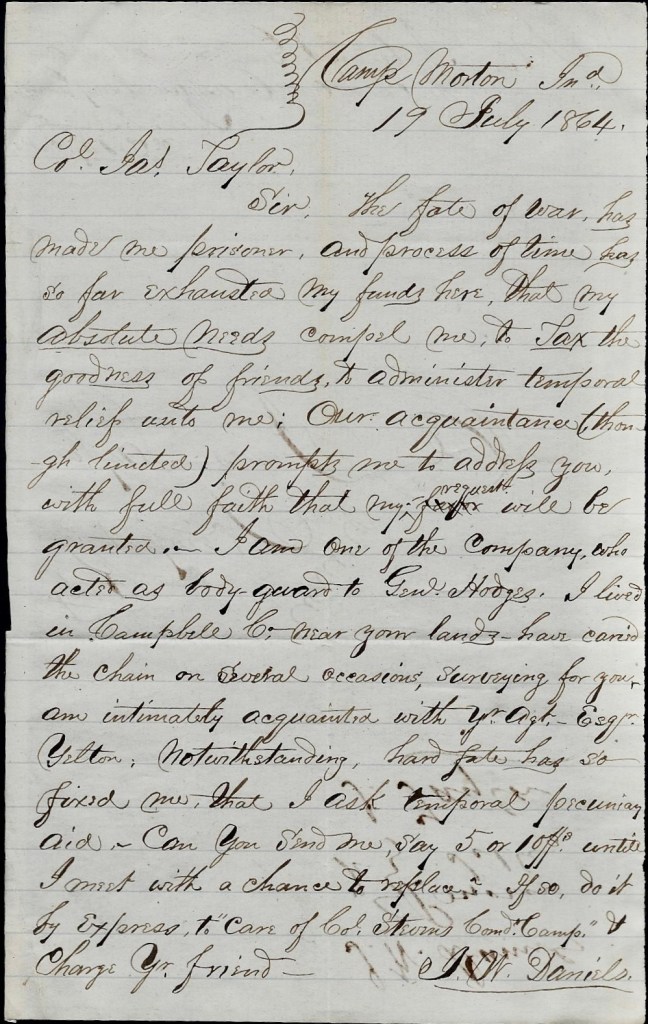 Camp Morton Ind.
19 July 1864.
Col. Jas. Taylor,
Sir, The fate of war, has
made me prisoner, and process of time has
so far exhausted my funds here, that my
absolute needs compel me, to Tax the
goodness of friends, to administer temporal
relief unto me; Our acquaintance (thou-
gh limited) prompts me to address you,
with full faith that my request will be
granted. — I am one of the company, who
acted as body-guard to Genl. Hodges. I lived
in Campbell Co. near your lands - have caried
the chain on several occasions, surveying for you,
am intimately acquainted with Yr. Agt. — Esqr.
Yelton; Notwithstanding, hard fate has so
fixed me, that I ask temporal pecuniay
aid. ~ Can You Send me, say 5 or 10 untill
I meet with a chance to replace - If so, do it
by express, to "care of Col. Stevens Comd. Camp." &
Charge Yr. friend — J. W. Daniels.